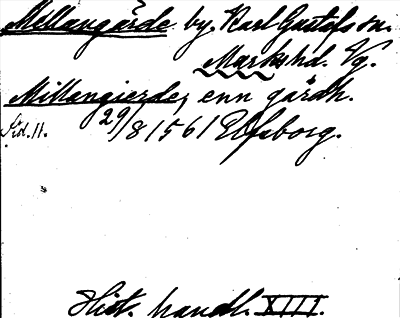 Millangärde by, Karl Gustafs sn.
Marks hd. Vg.
Millangierde, enn gårdh.
Sid. 11. 29/8 1561 Elfsborg.
Hist. handl. XIII.